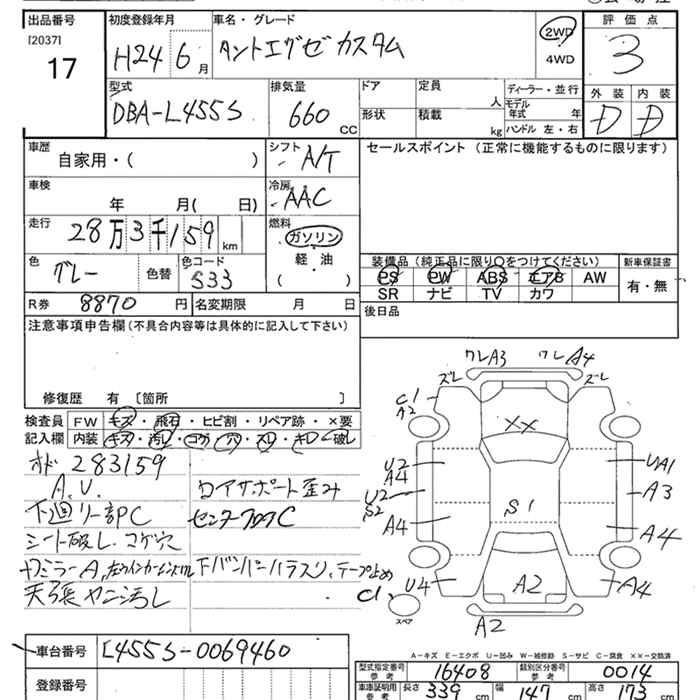 出品番号
[2037]
17
初度登録年月
H24 6月
車名・グレード
タントエグゼ カスタム
2WD
4WD
評価点
3
型式
DBA-L455S
排気量
660 CC
ドア
定員
人
形状
積載
kg
ディーラー・並行
モデル年式 年
ハンドル 左・右
外装 内装
D D
車歴
自家用・( )
シフト
A/T
セールスポイント (正常に機能するものに限ります)
車検
年 月( 日)
冷房
AAC
走行
28万3千159 km
燃料
ガソリン
軽・油
( )
色
グレー
色替
色コード
S33
装備品 (純正品に限り○をつけてください)
新車保証書
PS PW ABS エアB AW
SR ナビ TV カワ
有・無
R券 8870 円
名変期限 月 日
後日品
注意事項申告欄 (不具合内容等は具体的に記入して下さい)
修復歴 有 〔箇所 〕
検査員記入欄
FW キズ・飛石・ヒビ割・リペア跡・×要
内装 キズ・汚レ・コゲ・穴・スレ・キレ・破レ
メド 283159
A.V.
ロアサポート歪み
下廻リ一部PC
センターフロアC
シート破レ.コゲ穴
下バンパーハラスリ、テープ止め
天張ヤニ汚レ
ワレA3 ワレA4
ズレ ズレ
C1
A2
XX
U2
A4
UA1
U2
S2
A3
S1
A4
A4
U4
A2
A4
C1
スペア
A2
A-キズ E-エクボ U-凹み W-補修跡 S-サビ C-腐食 XX-交換済
車台番号 L455S-0069460
登録番号
型式指定番号 参考 16408
類別区分番号 参考 0014
車庫証明用 参考 長さ 339 cm 幅 147 cm 高さ 173 cm